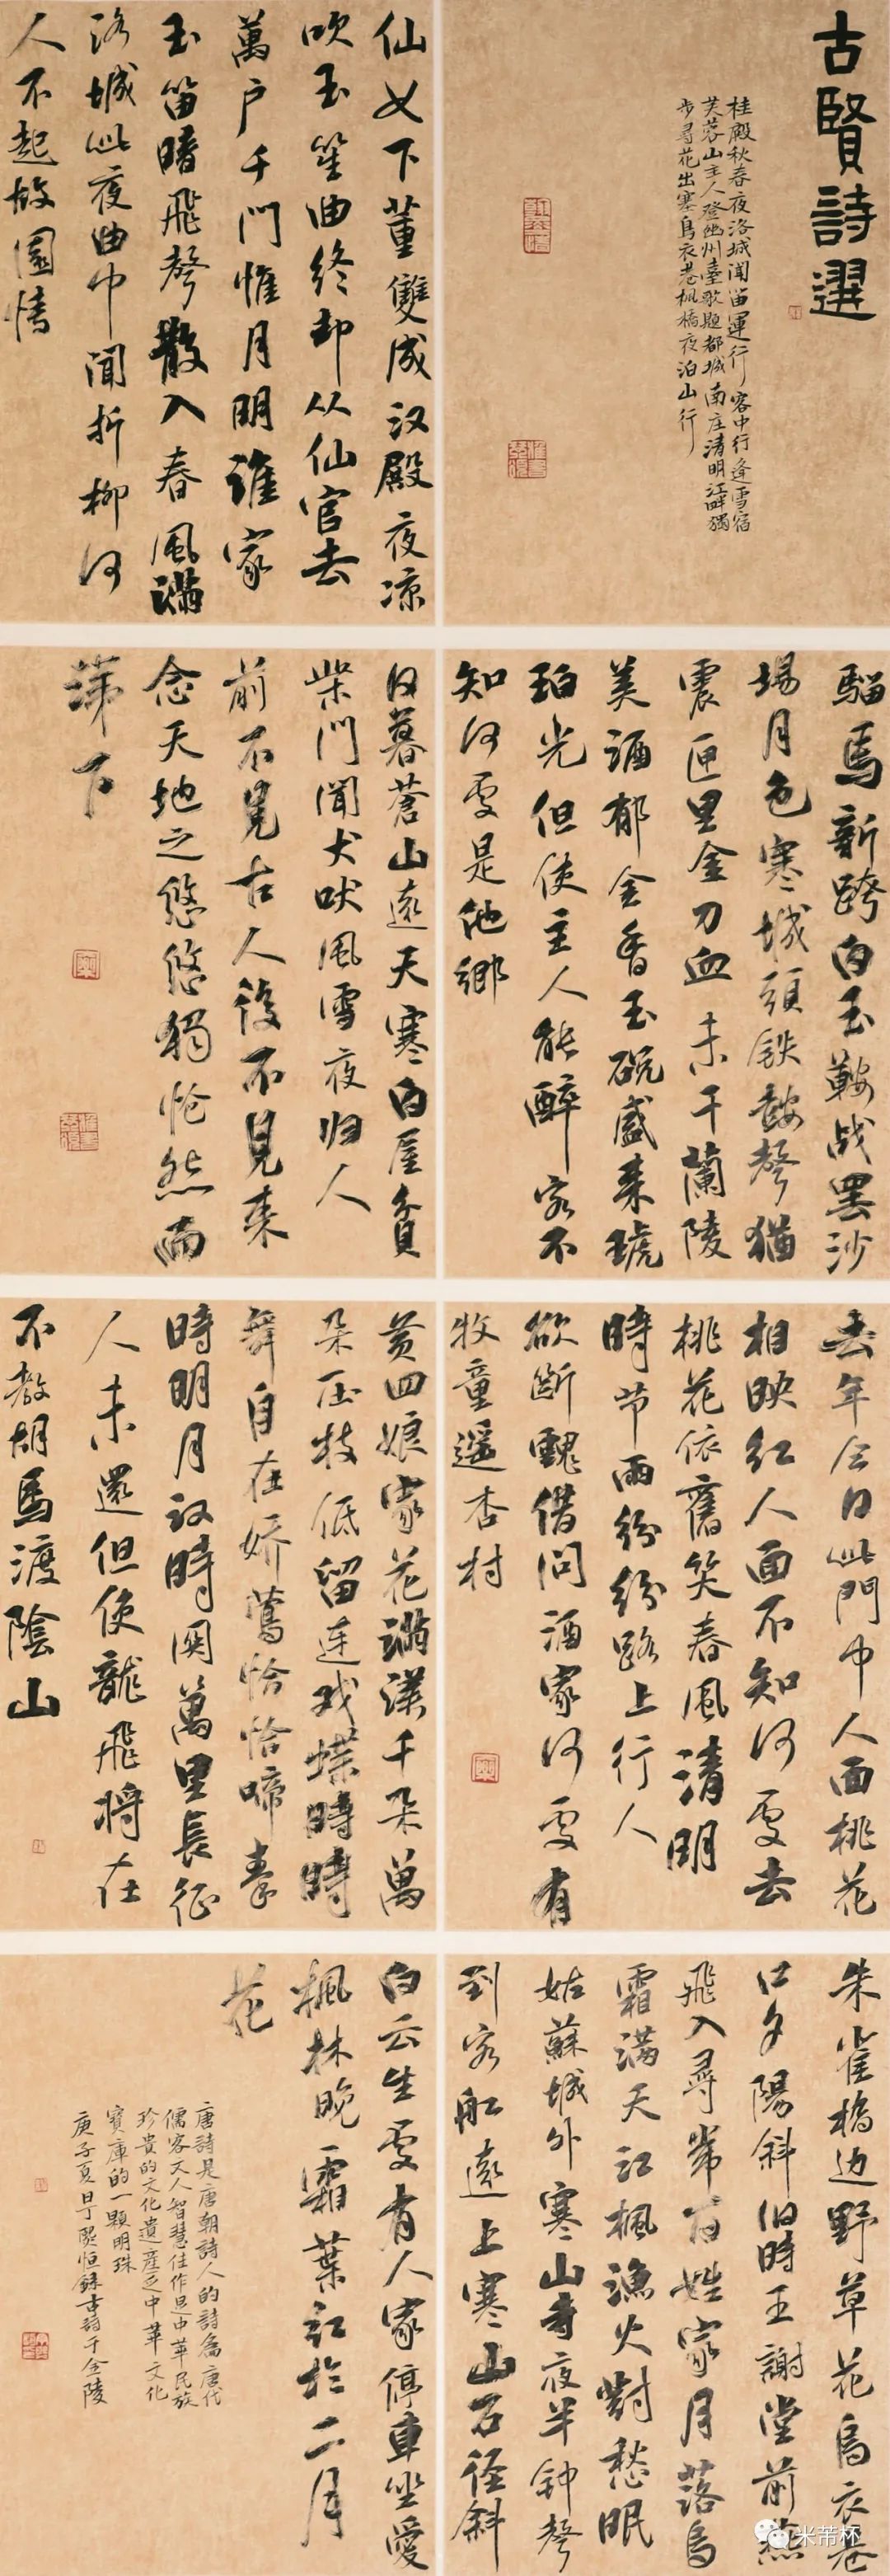 古賢詩選
桂殿秋春夜洛城聞笛軍行客中行逢雪宿
芙蓉山主人登幽州臺歌題都城南庄清明江畔獨
步尋花出塞烏衣巷楓橋夜泊山行
仙女下董雙成汉殿夜凉
吹玉笙曲终却从仙官去
萬户千門惟月明誰家
玉笛暗飛聲散入春風满
洛城此夜曲中聞折柳何
人不起故園情
騮馬新跨白玉鞍战罢沙
場月色寒城頭铁鼓聲猶
震匣里金刀血未干蘭陵
美酒郁金香玉碗盛来琥
珀光但使主人能醉客不
知何處是他鄉
日暮蒼山遠天寒白屋貧
柴門聞犬吠風雪夜归人
前不見古人後不見来
念天地之悠悠獨怆然而
涕下
去年今日此門中人面桃花
相映红人面不知何處去
桃花依舊笑春風清明
時节雨紛紛路上行人
欲断魂借问酒家何處有
牧童遥杏村
黄四娘家花满溪千朵萬
朵压枝低留连戏蝶時時
舞自在娇鶯恰恰啼秦
時明月汉時関萬里長征
人未還但使龍飛将在
不教胡馬渡陰山
朱雀橋边野草花烏衣巷
口夕陽斜旧時王謝堂前燕
飛入尋常百姓家月落烏
霜满天江楓渔火對愁眠
姑蘇城外寒山寺夜半钟聲
到客船遠上寒山石径斜
白云生處有人家停車坐愛
楓林晚霜葉红於二月
花
唐詩是唐朝詩人的詩為唐代
儒客文人智慧佳作是中華民族
珍貴的文化遺產乏中華文化
寶庫的一顆明珠
庚子夏日丁熙恒録古詩于金陵
米芾杯